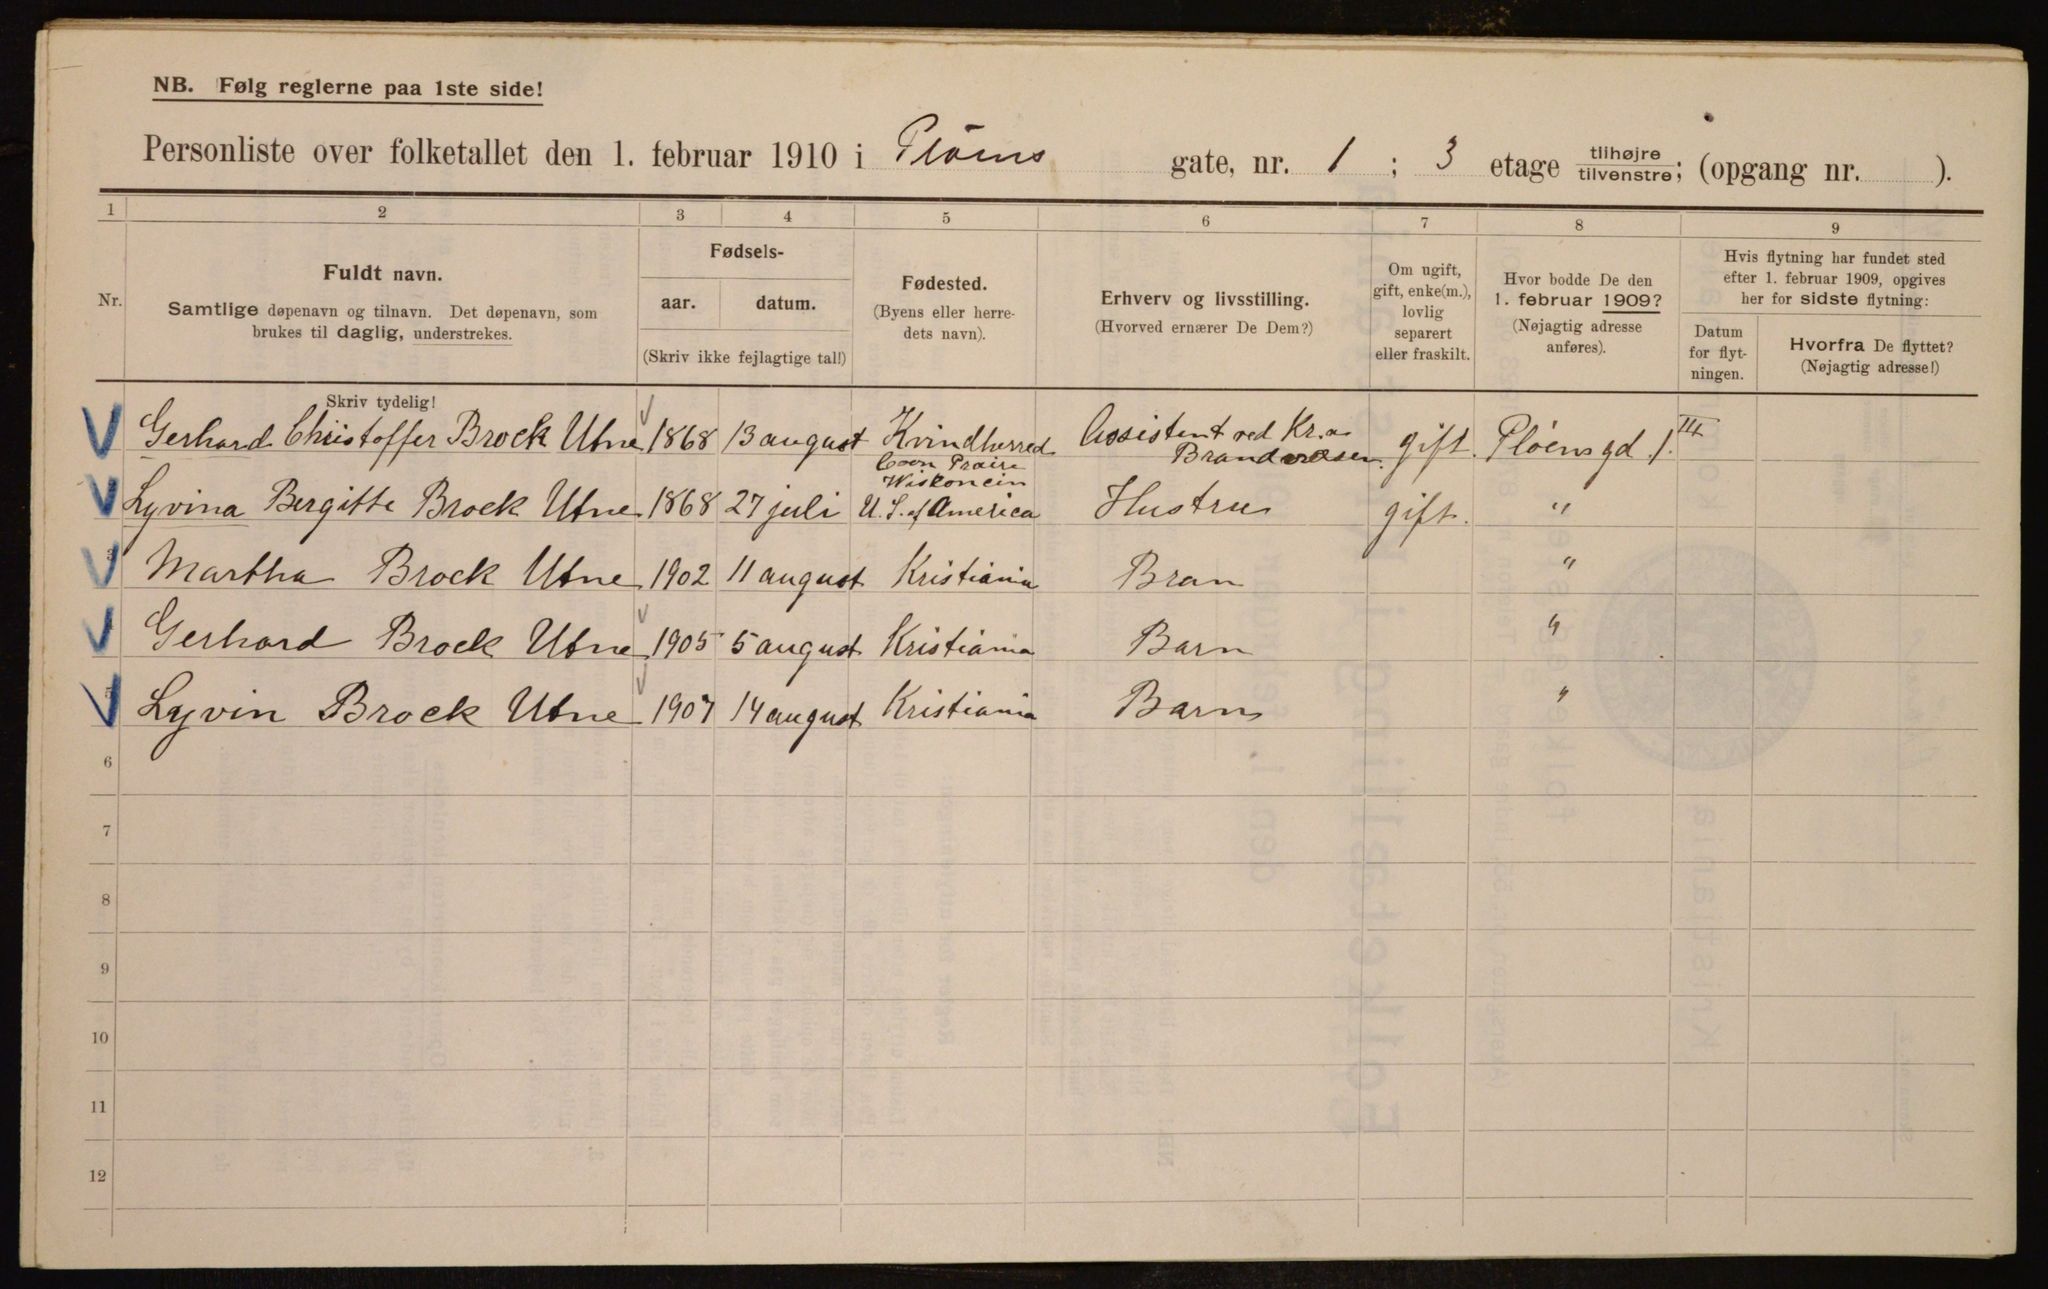 NB. Følg reglerne paa 1ste side!
Personliste over folketallet den 1. februar 1910 i Pløens gate, nr. 1 ; 3 etage tilhøjre tilvenstre; (opgang nr. ).
1 2 3 4 5 6 7 8 9
Nr.
Fuldt navn.
Samtlige døpenavn og tilnavn. Det døpenavn, som
brukes til daglig, understrekes.
Fødsels-
aar. datum.
(Skriv ikke fejlagtige tal!)
Fødested.
(Byens eller herre-
dets navn).
Erhverv og livsstilling.
(Hvorved ernærer De Dem?)
Om ugift,
gift, enke(m.),
lovlig
separert
eller fraskilt.
Hvor bodde De den
1. februar 1909?
(Nøjagtig adresse
anføres).
Hvis flytning har fundet sted
efter 1. februar 1909, opgives
her for sidste flytning:
Datum
for flyt-
ningen.
Hvorfra De flyttet?
(Nøjagtig adresse!)
Skriv tydelig!
Gerhard Christoffer Brock Utne 1868 13 august Kvindherred Assistent ved Kr.a Brandvæsen. gift. Pløensgd 1. III
Coon Praire
Wiskonsin
Lyvina Bergitte Brock Utne 1868 27 juli U. S. of America Hustru gift. "
3 Martha Brock Utne 1902 11 august Kristiania Bran "
Gerhard Brock Utne 1905 5 august Kristiania Barn "
5 Lyvin Brock Utne 1907 14 august Kristiania Barn "
6
7
8
9
10
11
12